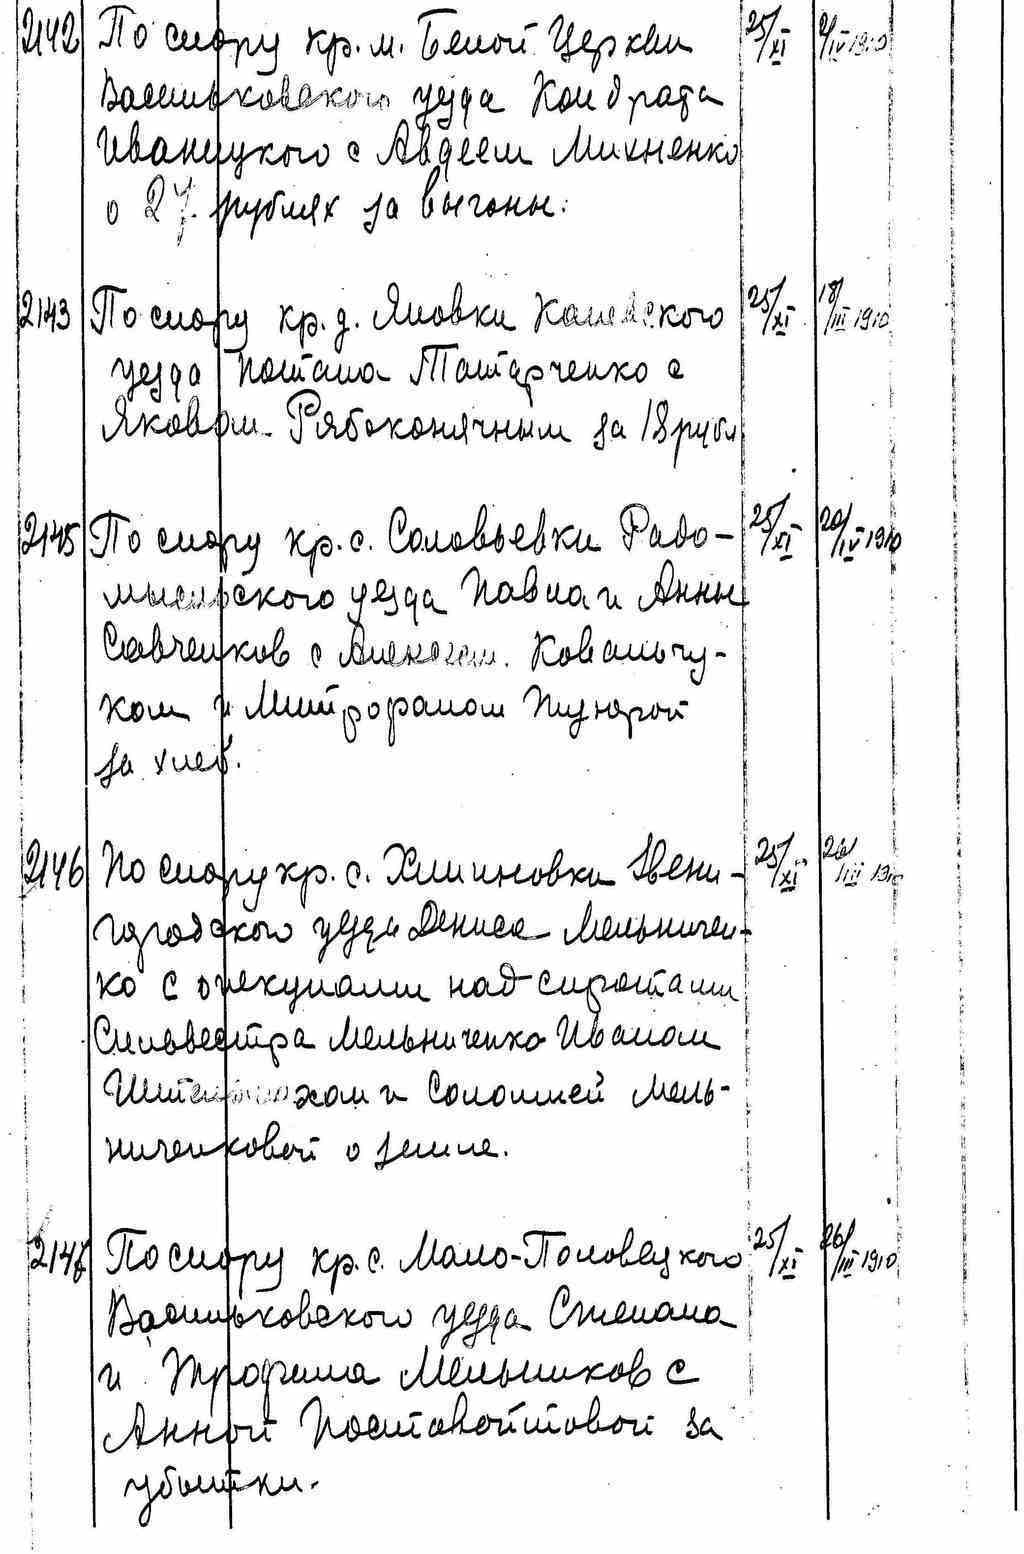 2142 По спору кр. м. Белой Церкви 25/XI 2/IV 1910
Васильковского уезда Кондрата
Иваницкого с Авдеем Михненко
о 27 рублях за выгоны.
2143 По спору кр. д. Яновки Каневского 25/XI 18/III 1910
уезда Потапа Татарченко с
Яковом Рябоконячным за 18 рубл
2145 По спору кр. с. Соловьевки Радо- 25/XI 20/IV 1910
мысльского уезда Павла и Анны
Савченков с Алексеем Ковальчу-
ком и Митрофаном
за хлеб.
2146 По спору кр. с. Хлиповки Звени- 25/XI 26/III 1910
городского уезда Дениса Мельничен-
ко с опекунами над сиротами
Сильвестра Мельниченко Иваном
и Соломией Мель-
ниченковой о земле.
2147 По спору кр. с. Мало-Половецкого 25/XI 26/III 1910
Васильковского уезда Степана
и Трофима Мельников с
Анной Постовойтовой за
убытки.